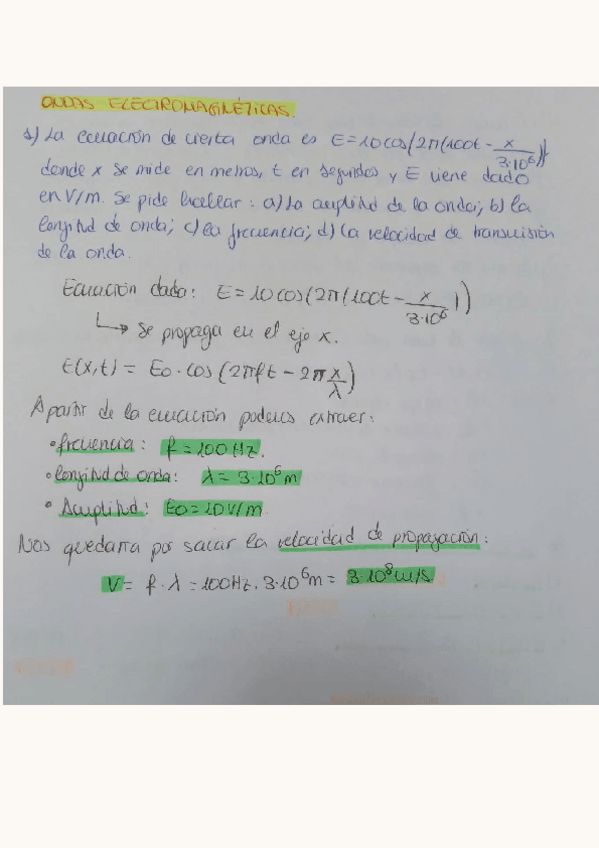 ONDAS ELECTROMAGNÉTICAS.
1) La ecuación de cierta onda es E=10cos(2π(100t - x/3·10⁶))
donde x se mide en metros, t en segundos y E viene dado
en V/m. Se pide hallar: a) La amplitud de la onda; b) la
longitud de onda; c) la frecuencia; d) la velocidad de transmisión
de la onda.
Ecuación dada: E=10cos(2π(100t - x/3·10⁶))
↳ se propaga en el eje x.
E(x,t) = E₀·cos(2πft - 2π x/λ)
A partir de la ecuación podemos extraer:
• frecuencia: f=100Hz.
• longitud de onda: λ= 3·10⁶m
• Amplitud: E₀=10V/m
Nos quedaría por sacar la velocidad de propagación:
V= f·λ = 100Hz·3·10⁶m = 3·10⁸m/s